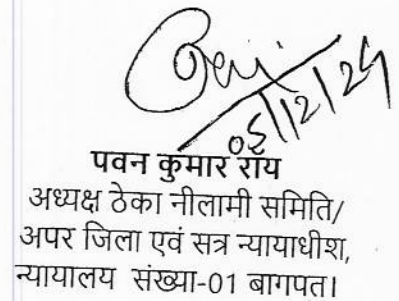 05/12/24
पवन कुमार रॉय
अध्यक्ष ठेका नीलामी समिति/
अपर जिला एवं सत्र न्यायाधीश,
न्यायालय संख्या-01 बागपत।